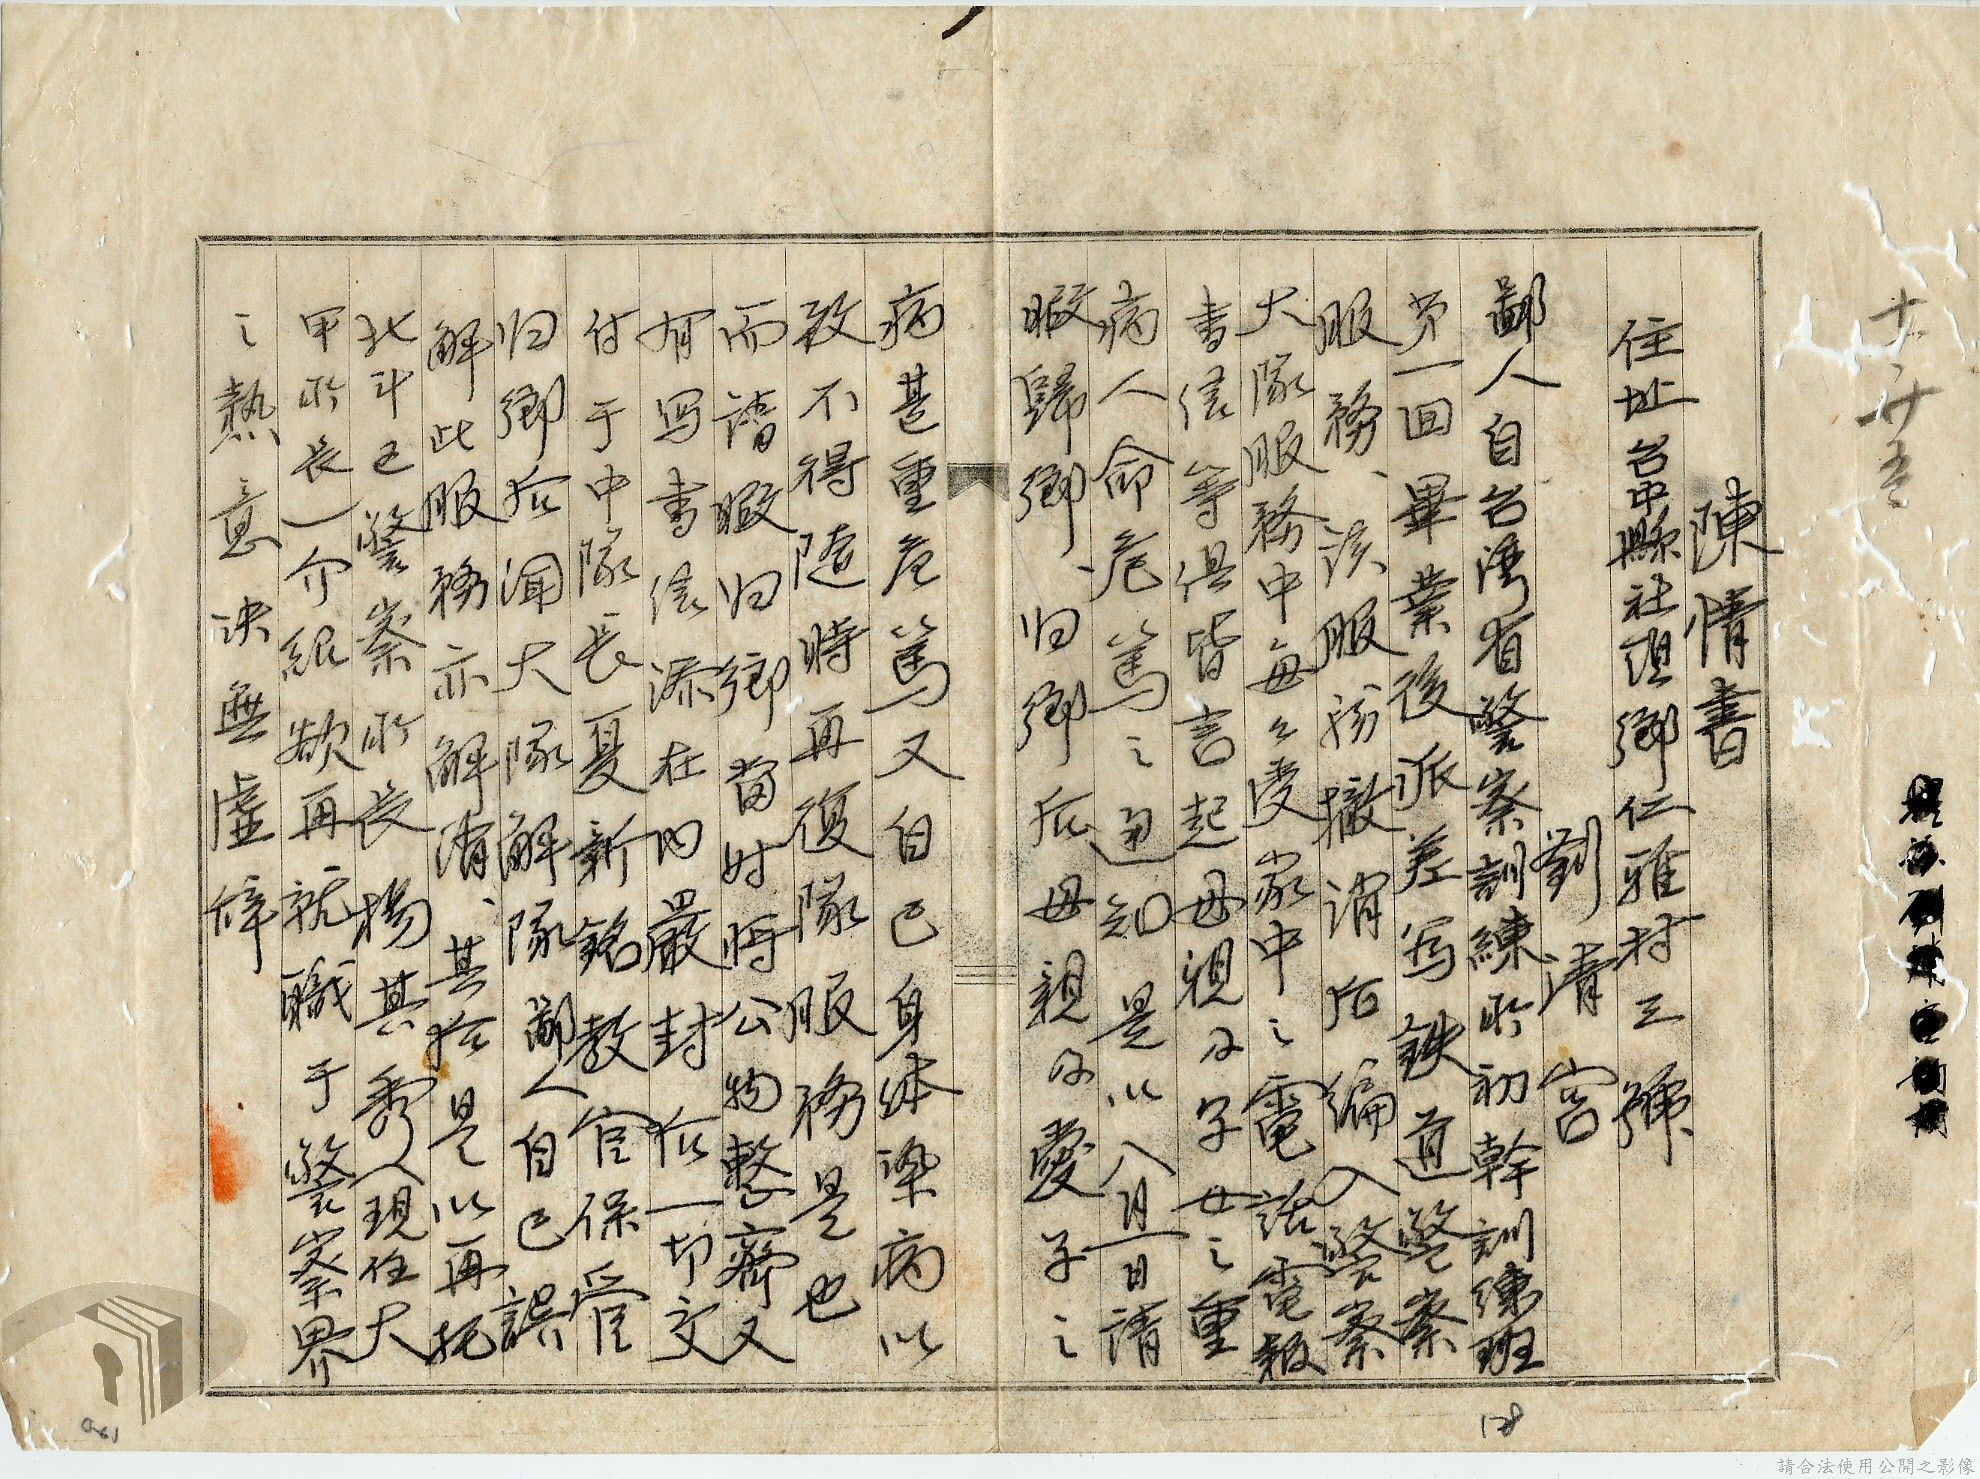 十、廿五
陳情書
住址台中縣社頭鄉仁雅村三號
劉清宮
鄙人自台湾省警察訓練所初幹訓練班
第一回畢業後派差写鉄道警察
服務、該服務撤消后編入警察
大隊服務中每々受家中之電話電報
書信等俱皆言起母親及子女之重
病人命危篤之通知是以八月一日請
暇歸鄉、归鄉后母親及愛子之
病甚重危篤又自己身体染病以
致不得随時再復隊服務是也
而請暇归鄉当时將公物整齊又
有写書信添在内嚴封后一切交
付于中隊長夏新銘教官保管
归鄉后聞大隊解隊鄙人自己誤
解此服務亦解消、其於是以再托
北斗区警察所長楊其秀(現任大
甲所長)介紹欲再就職于警察界
之熱意决無虚辞
128
061
請合法使用公開之影像